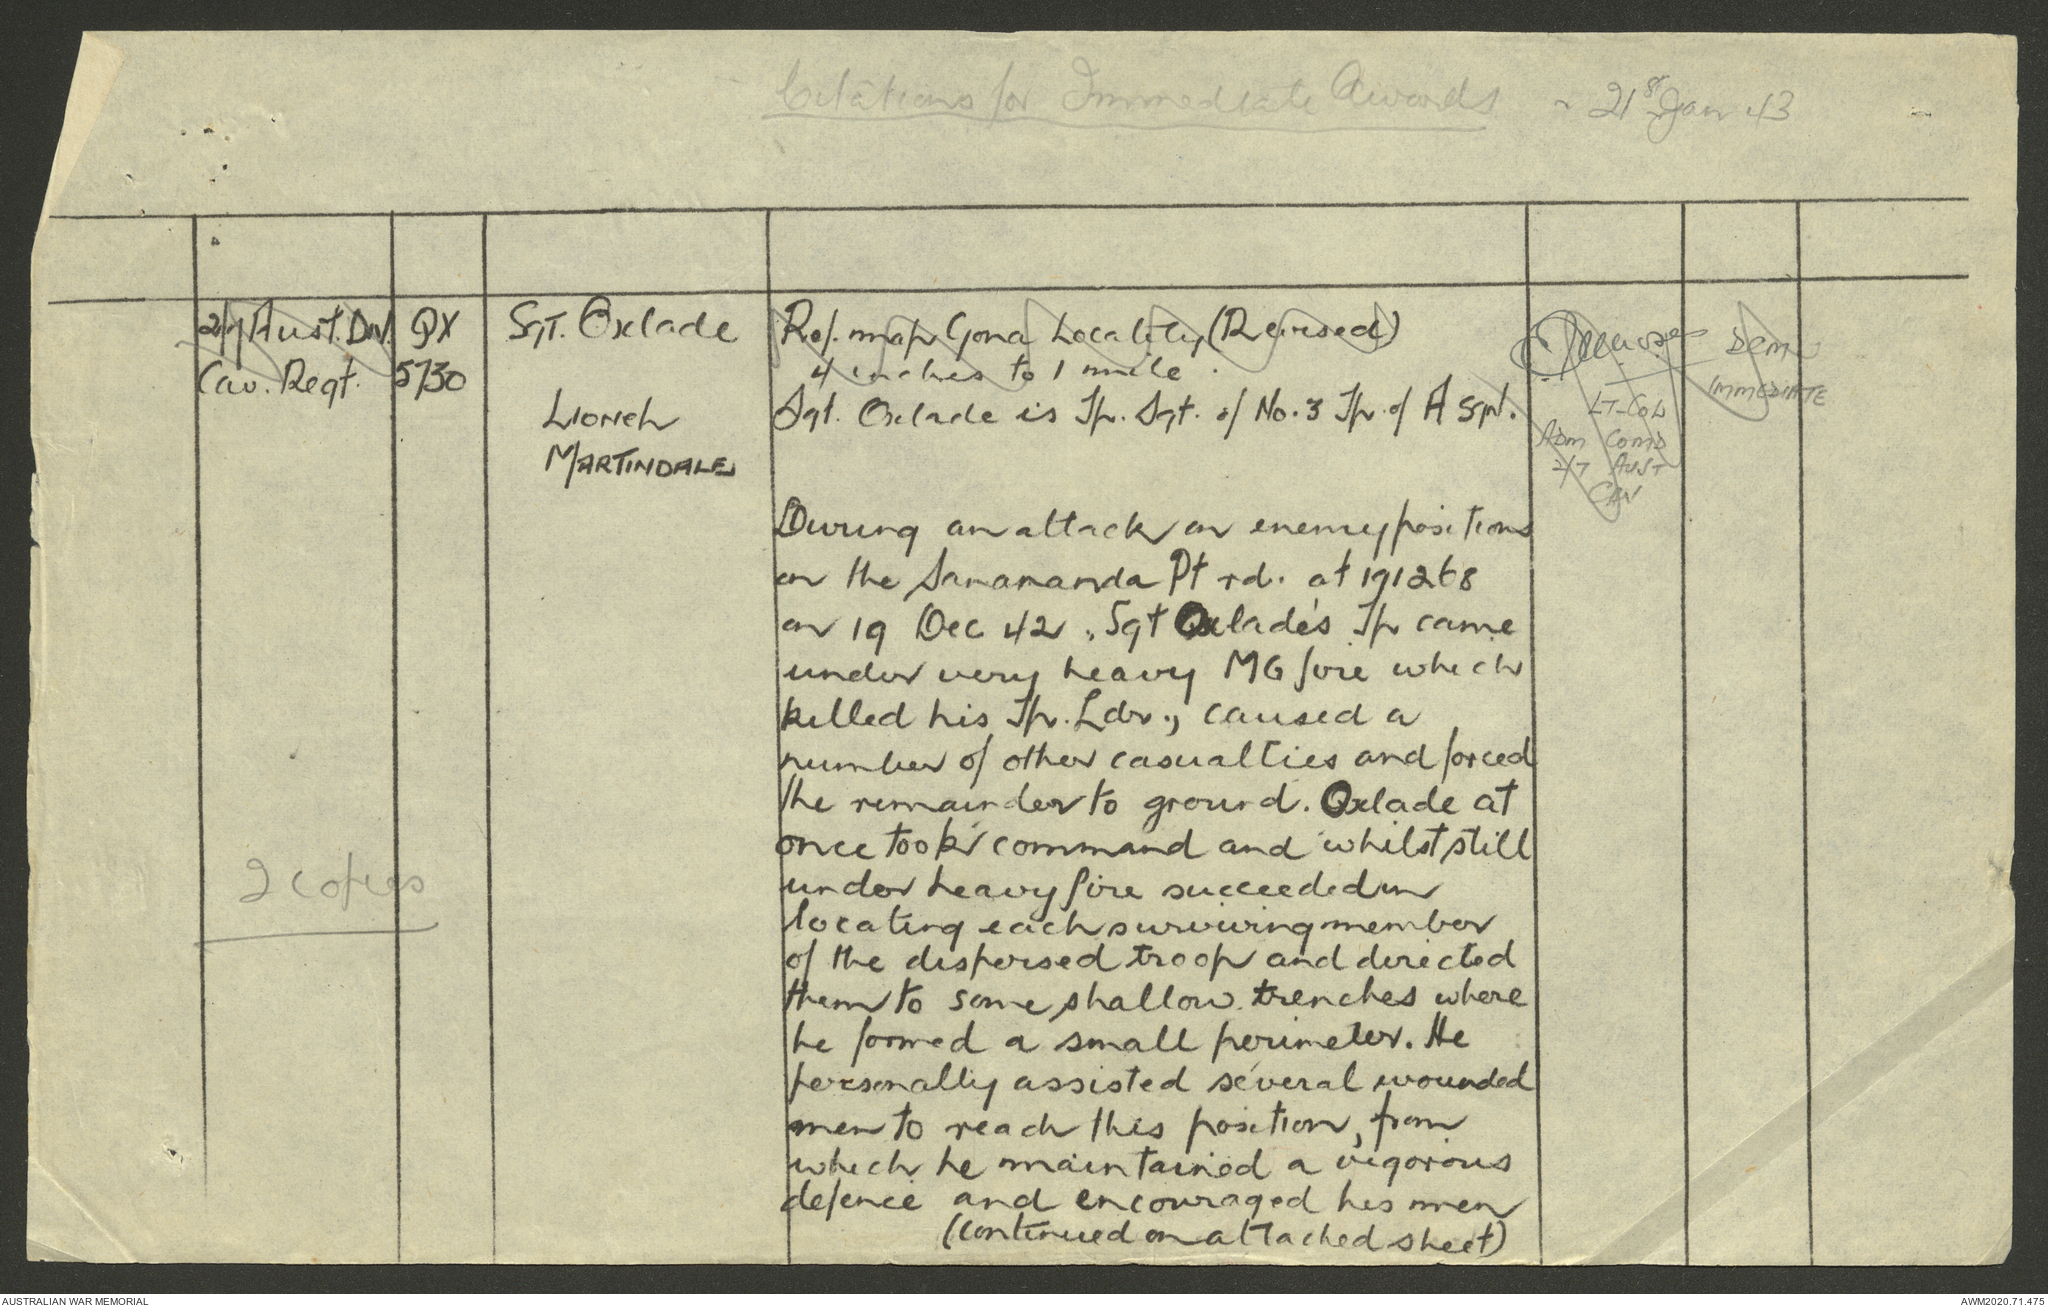 Citations for Immediate Awards - 21st Jan 43
2/7 Aust. Div. Cav. Regt.
QX 5730
Sgt. Oxlade
Lionel
MARTINDALE
Ref. map Gona Locality (Revised)
4 inches to 1 mile.
Sgt. Oxlade is Tp. Sgt. of No. 3 Tp. of A Sqn.
During an attack on enemy positions
on the Sanananda Pt rd. at 191268
on 19 Dec 42, Sgt Oxlade's Tp came
under very heavy MG fire which
killed his Tp. Ldr., caused a
number of other casualties and forced
the remainder to ground. Oxlade at
once took command and whilst still
under heavy fire succeeded in
locating each surviving member
of the dispersed troop and directed
them to some shallow trenches where
he formed a small perimeter. He
personally assisted several wounded
men to reach this position, from
which he maintained a vigorous
defence and encouraged his men
(continued on attached sheet)
LT-COL
ADM COMD
2/7 AUST
CAV
DCM
IMMEDIATE
2 copies
AUSTRALIAN WAR MEMORIAL
AWM2020.71.475